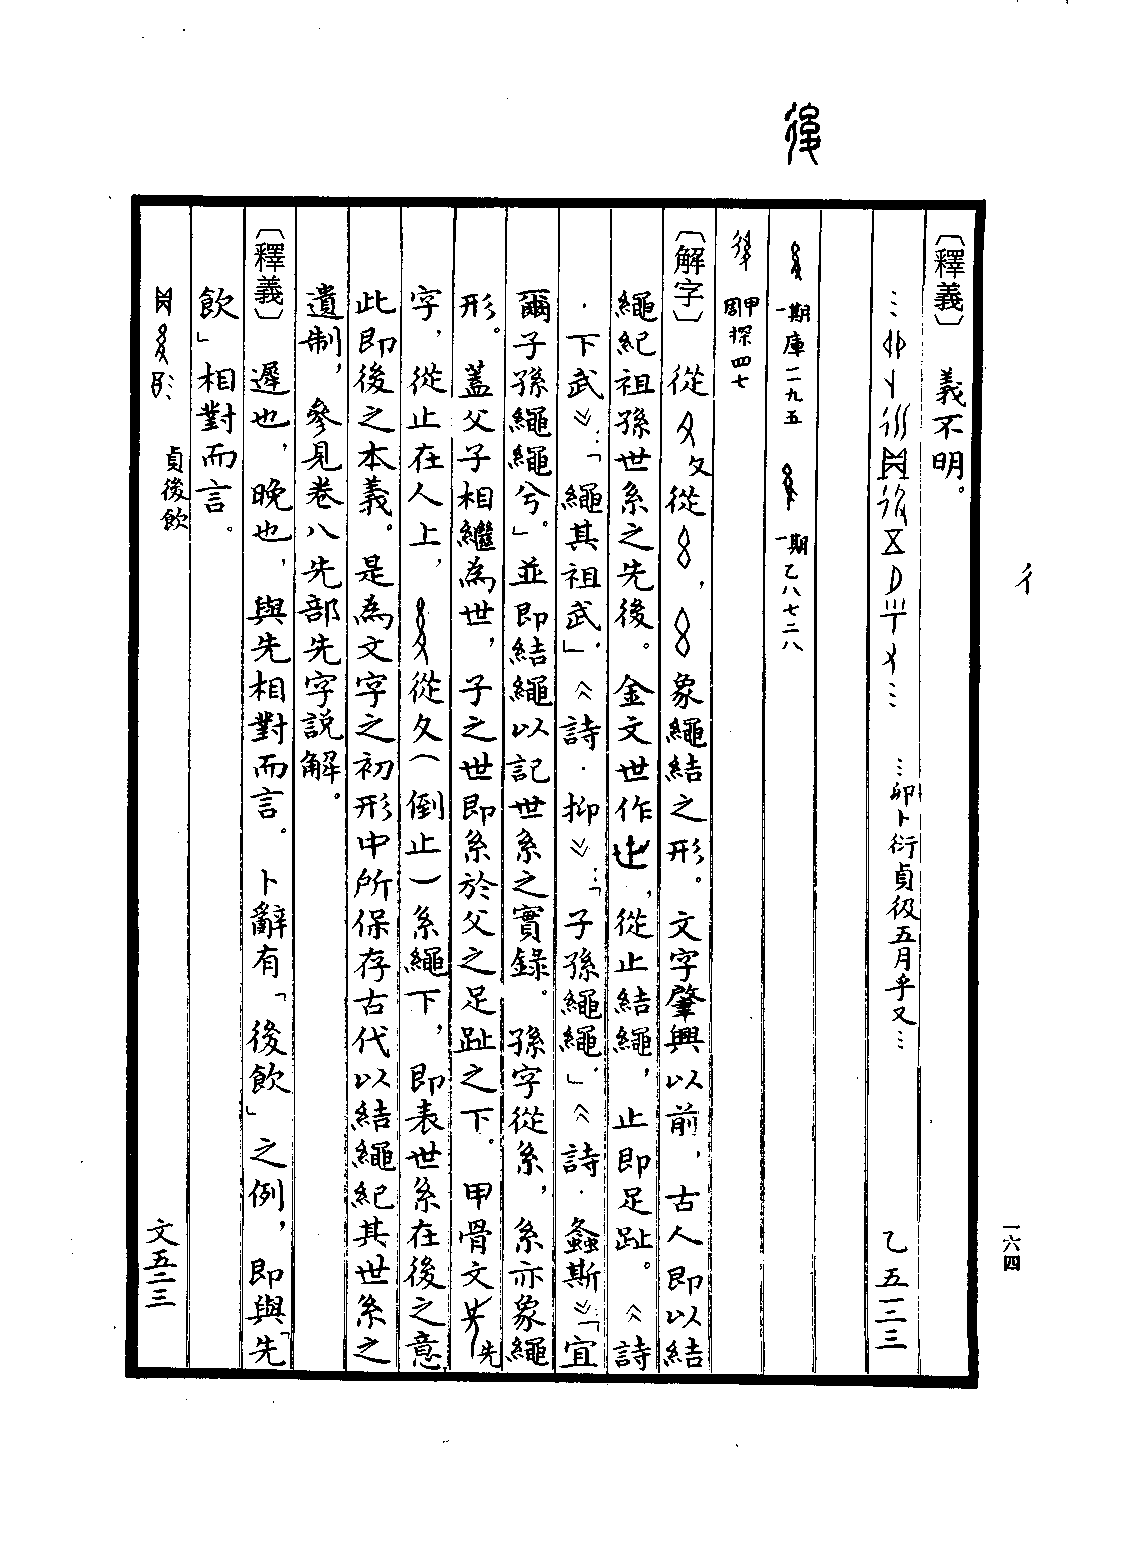 後
彳
一六四
〔釋義〕　義不明。
…卯卜衍貞彶五月乎又…　乙五一三三
一期庫二九五　一期乙八七二八
周甲探四七
〔解字〕　從夂從，象繩結之形。文字肇興以前，古人即以結
繩紀祖孫世系之先後。金文世作，從止結繩，止即足趾。《詩
·下武》：「繩其祖武」，《詩·抑》：「子孫繩繩」，《詩·螽斯》：「宜
爾子孫繩繩兮」。並即結繩以記世系之實錄。孫字從系，系亦象繩
形。蓋父子相繼為世，子之世即系於父之足趾之下。甲骨文先
字，從止在人上，從夂（倒止）系繩下，即表世系在後之意
此即後之本義。是為文字之初形中所保存古代以結繩紀其世系之
遺制，參見卷八先部先字說解。
〔釋義〕　遲也，晚也，與先相對而言。卜辭有「後飲」之例，即與「先
飲」相對而言。
貞後飲　文五二三